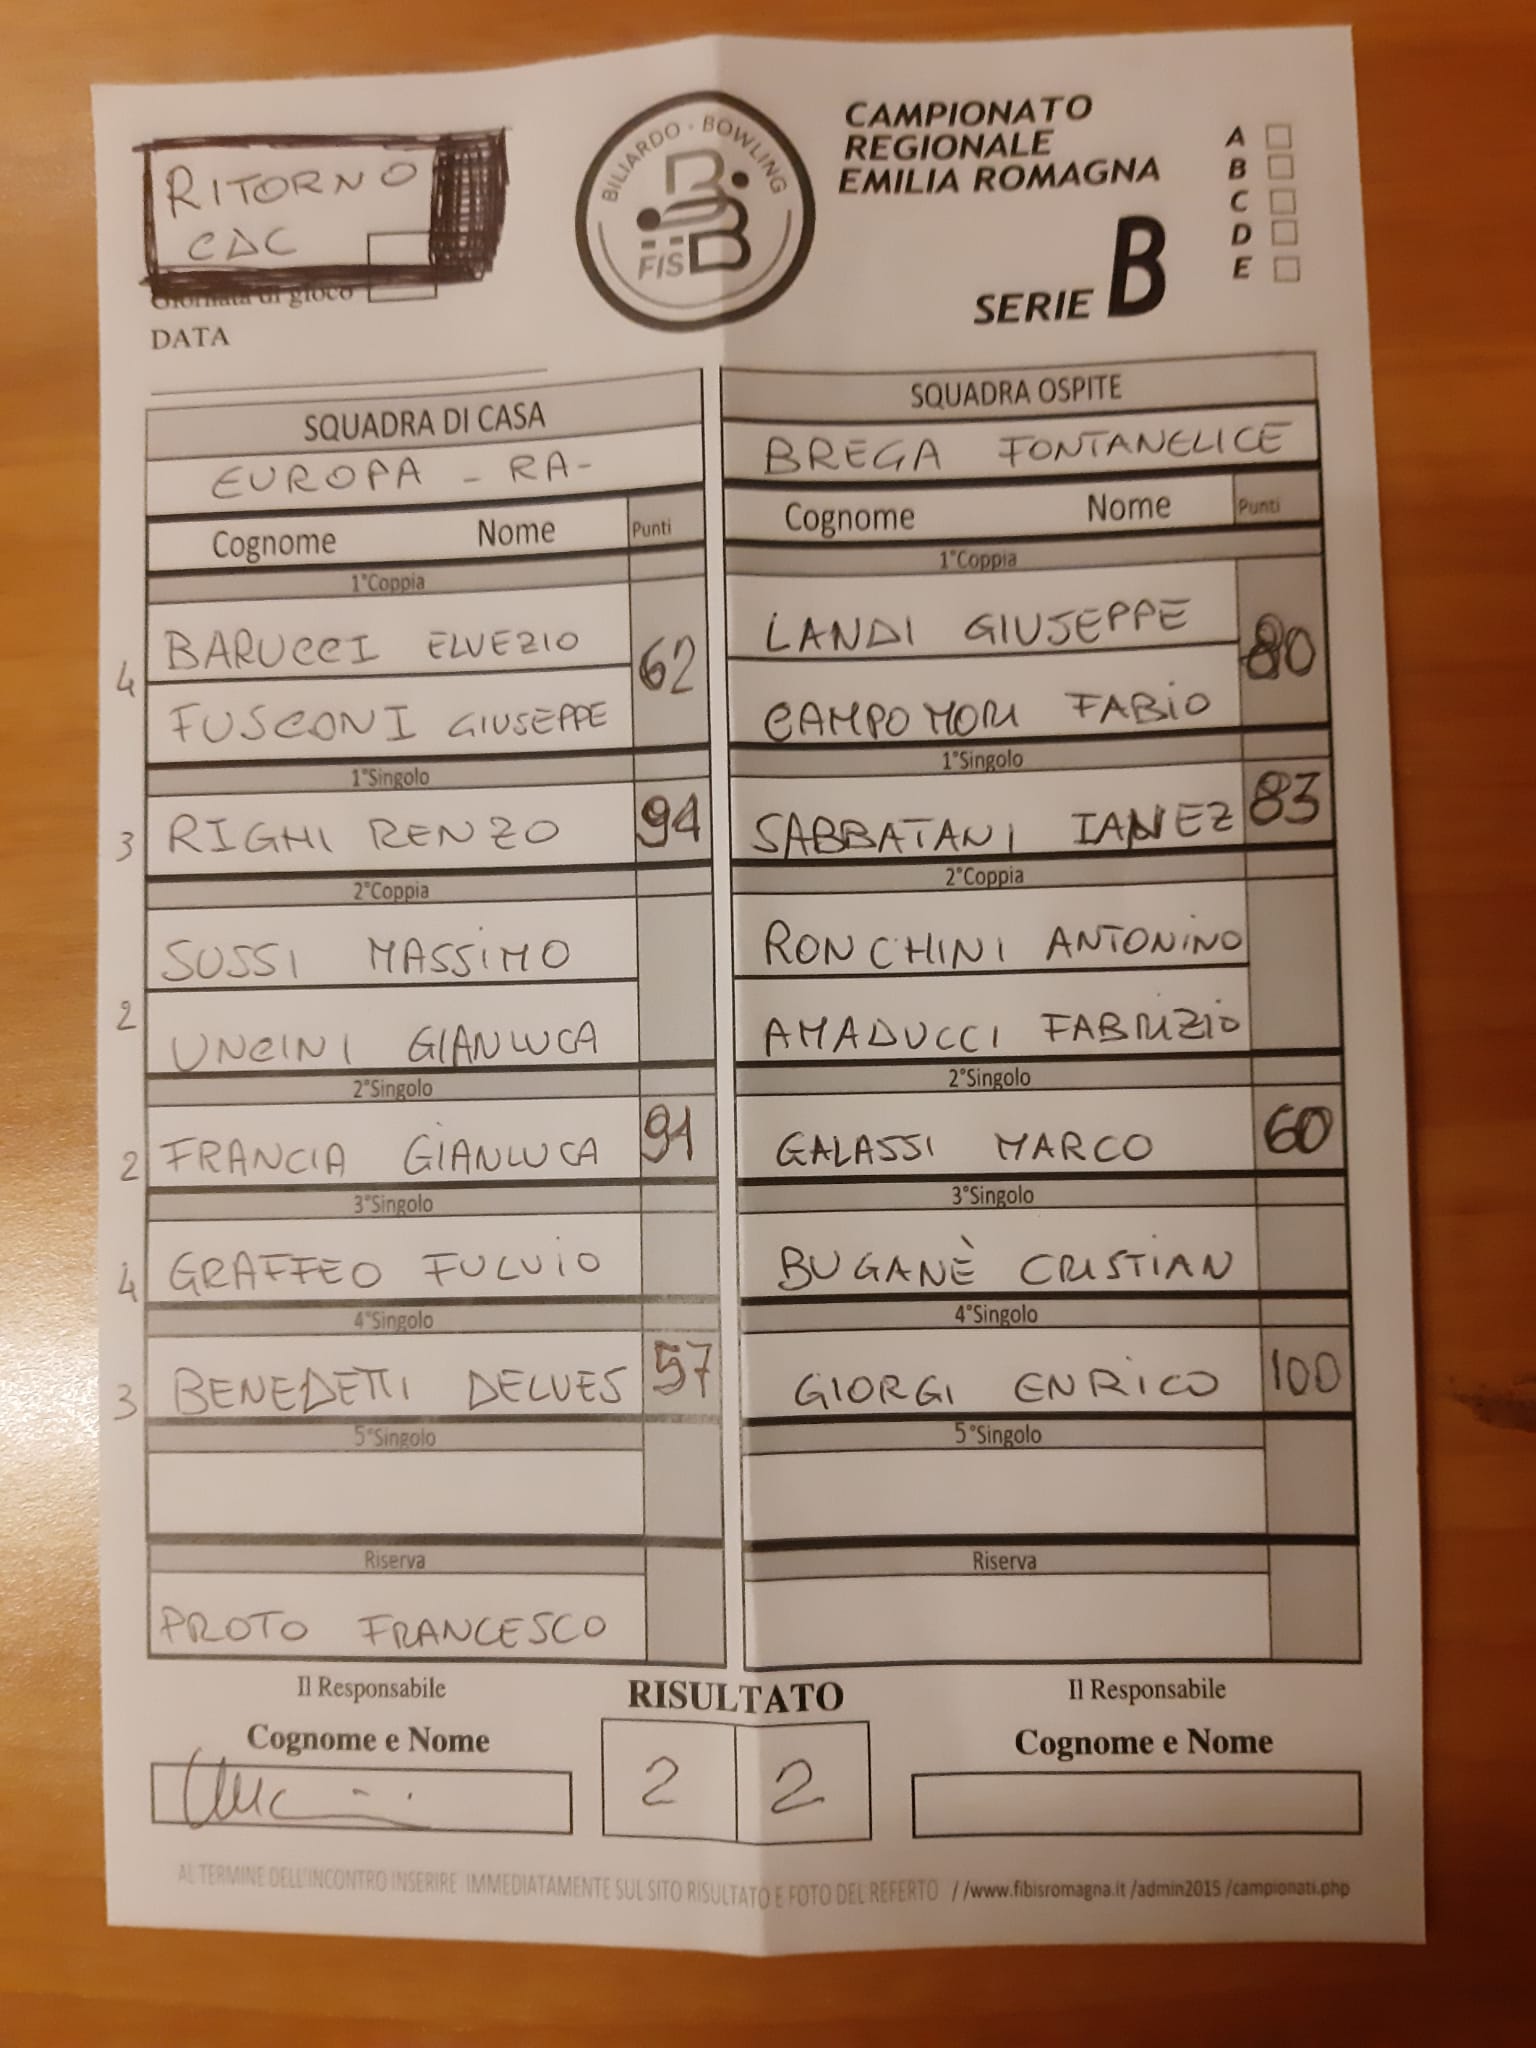 RITORNO
CDC
Giornata di gioco
DATA
BILIARDO - BOWLING
FISBB
CAMPIONATO
REGIONALE
EMILIA ROMAGNA
SERIE B
A
B
C
D
E
SQUADRA DI CASA
EUROPA - RA-
Cognome Nome Punti
1°Coppia
4 BARUCCI ELVEZIO 62
FUSCONI GIUSEPPE
1°Singolo
3 RIGHI RENZO 94
2°Coppia
SUSSI MASSIMO
2 UNCINI GIANLUCA
2°Singolo
2 FRANCIA GIANLUCA 91
3°Singolo
4 GRAFFEO FULVIO
4°Singolo
3 BENEDETTI DELVES 57
5°Singolo
Riserva
PROTO FRANCESCO
SQUADRA OSPITE
BREGA FONTANELICE
Cognome Nome Punti
1°Coppia
LANDI GIUSEPPE 80
CAMPOMORI FABIO
1°Singolo
SABBATANI IANEZ 83
2°Coppia
RONCHINI ANTONINO
AMADUCCI FABRIZIO
2°Singolo
GALASSI MARCO 60
3°Singolo
BUGANÈ CRISTIAN
4°Singolo
GIORGI ENRICO 100
5°Singolo
Riserva
Il Responsabile
Cognome e Nome
RISULTATO
2 2
Il Responsabile
Cognome e Nome
AL TERMINE DELL'INCONTRO INSERIRE IMMEDIATAMENTE SUL SITO RISULTATO E FOTO DEL REFERTO //www.fibisromagna.it /admin2015 /campionati.php